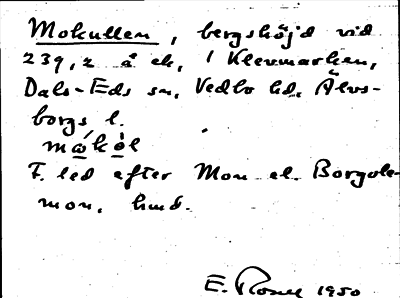 Mokullen, bergshöjd vid
239,2 å ek, i Klevmarken,
Dals-Eds sn, Vedbo hd, Älvs-
borgs l.
F. led efter Mon el. Borgole-
mon, hmd.
E. 1950